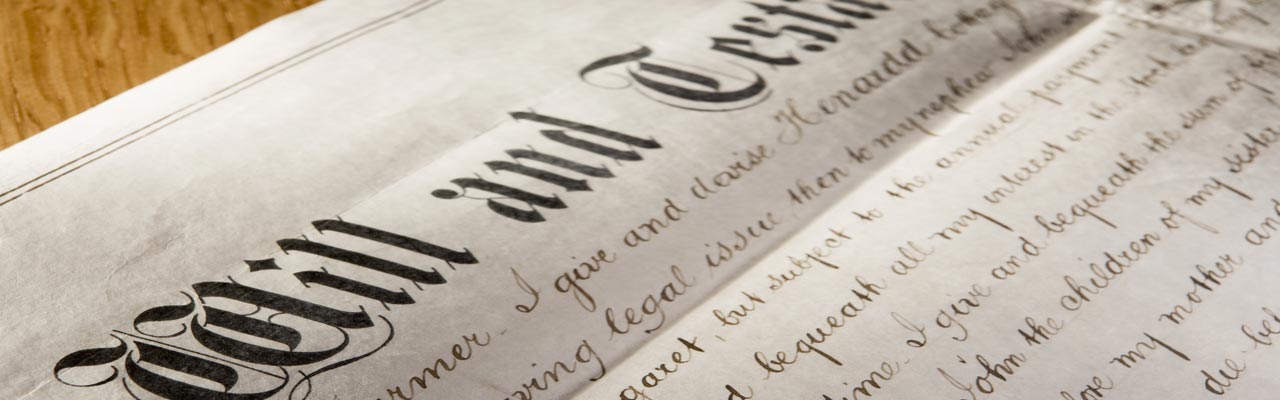 Will and Testa
armer. I give and devise
leaving legal issue then to my nephew John
garet, but subject to the annual payment
d bequeath all my interest in the
ime. I give and bequeath the sum of
John the children of my sister
ore my mother and
die be